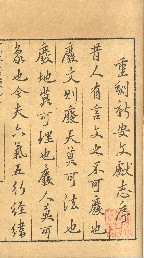 重刻新安文獻志序
昔人有言文之不可廢也
廢文則廢夫莫可法也
廢地莫可理也廢人莫可
象也今夫六氣五行經緯